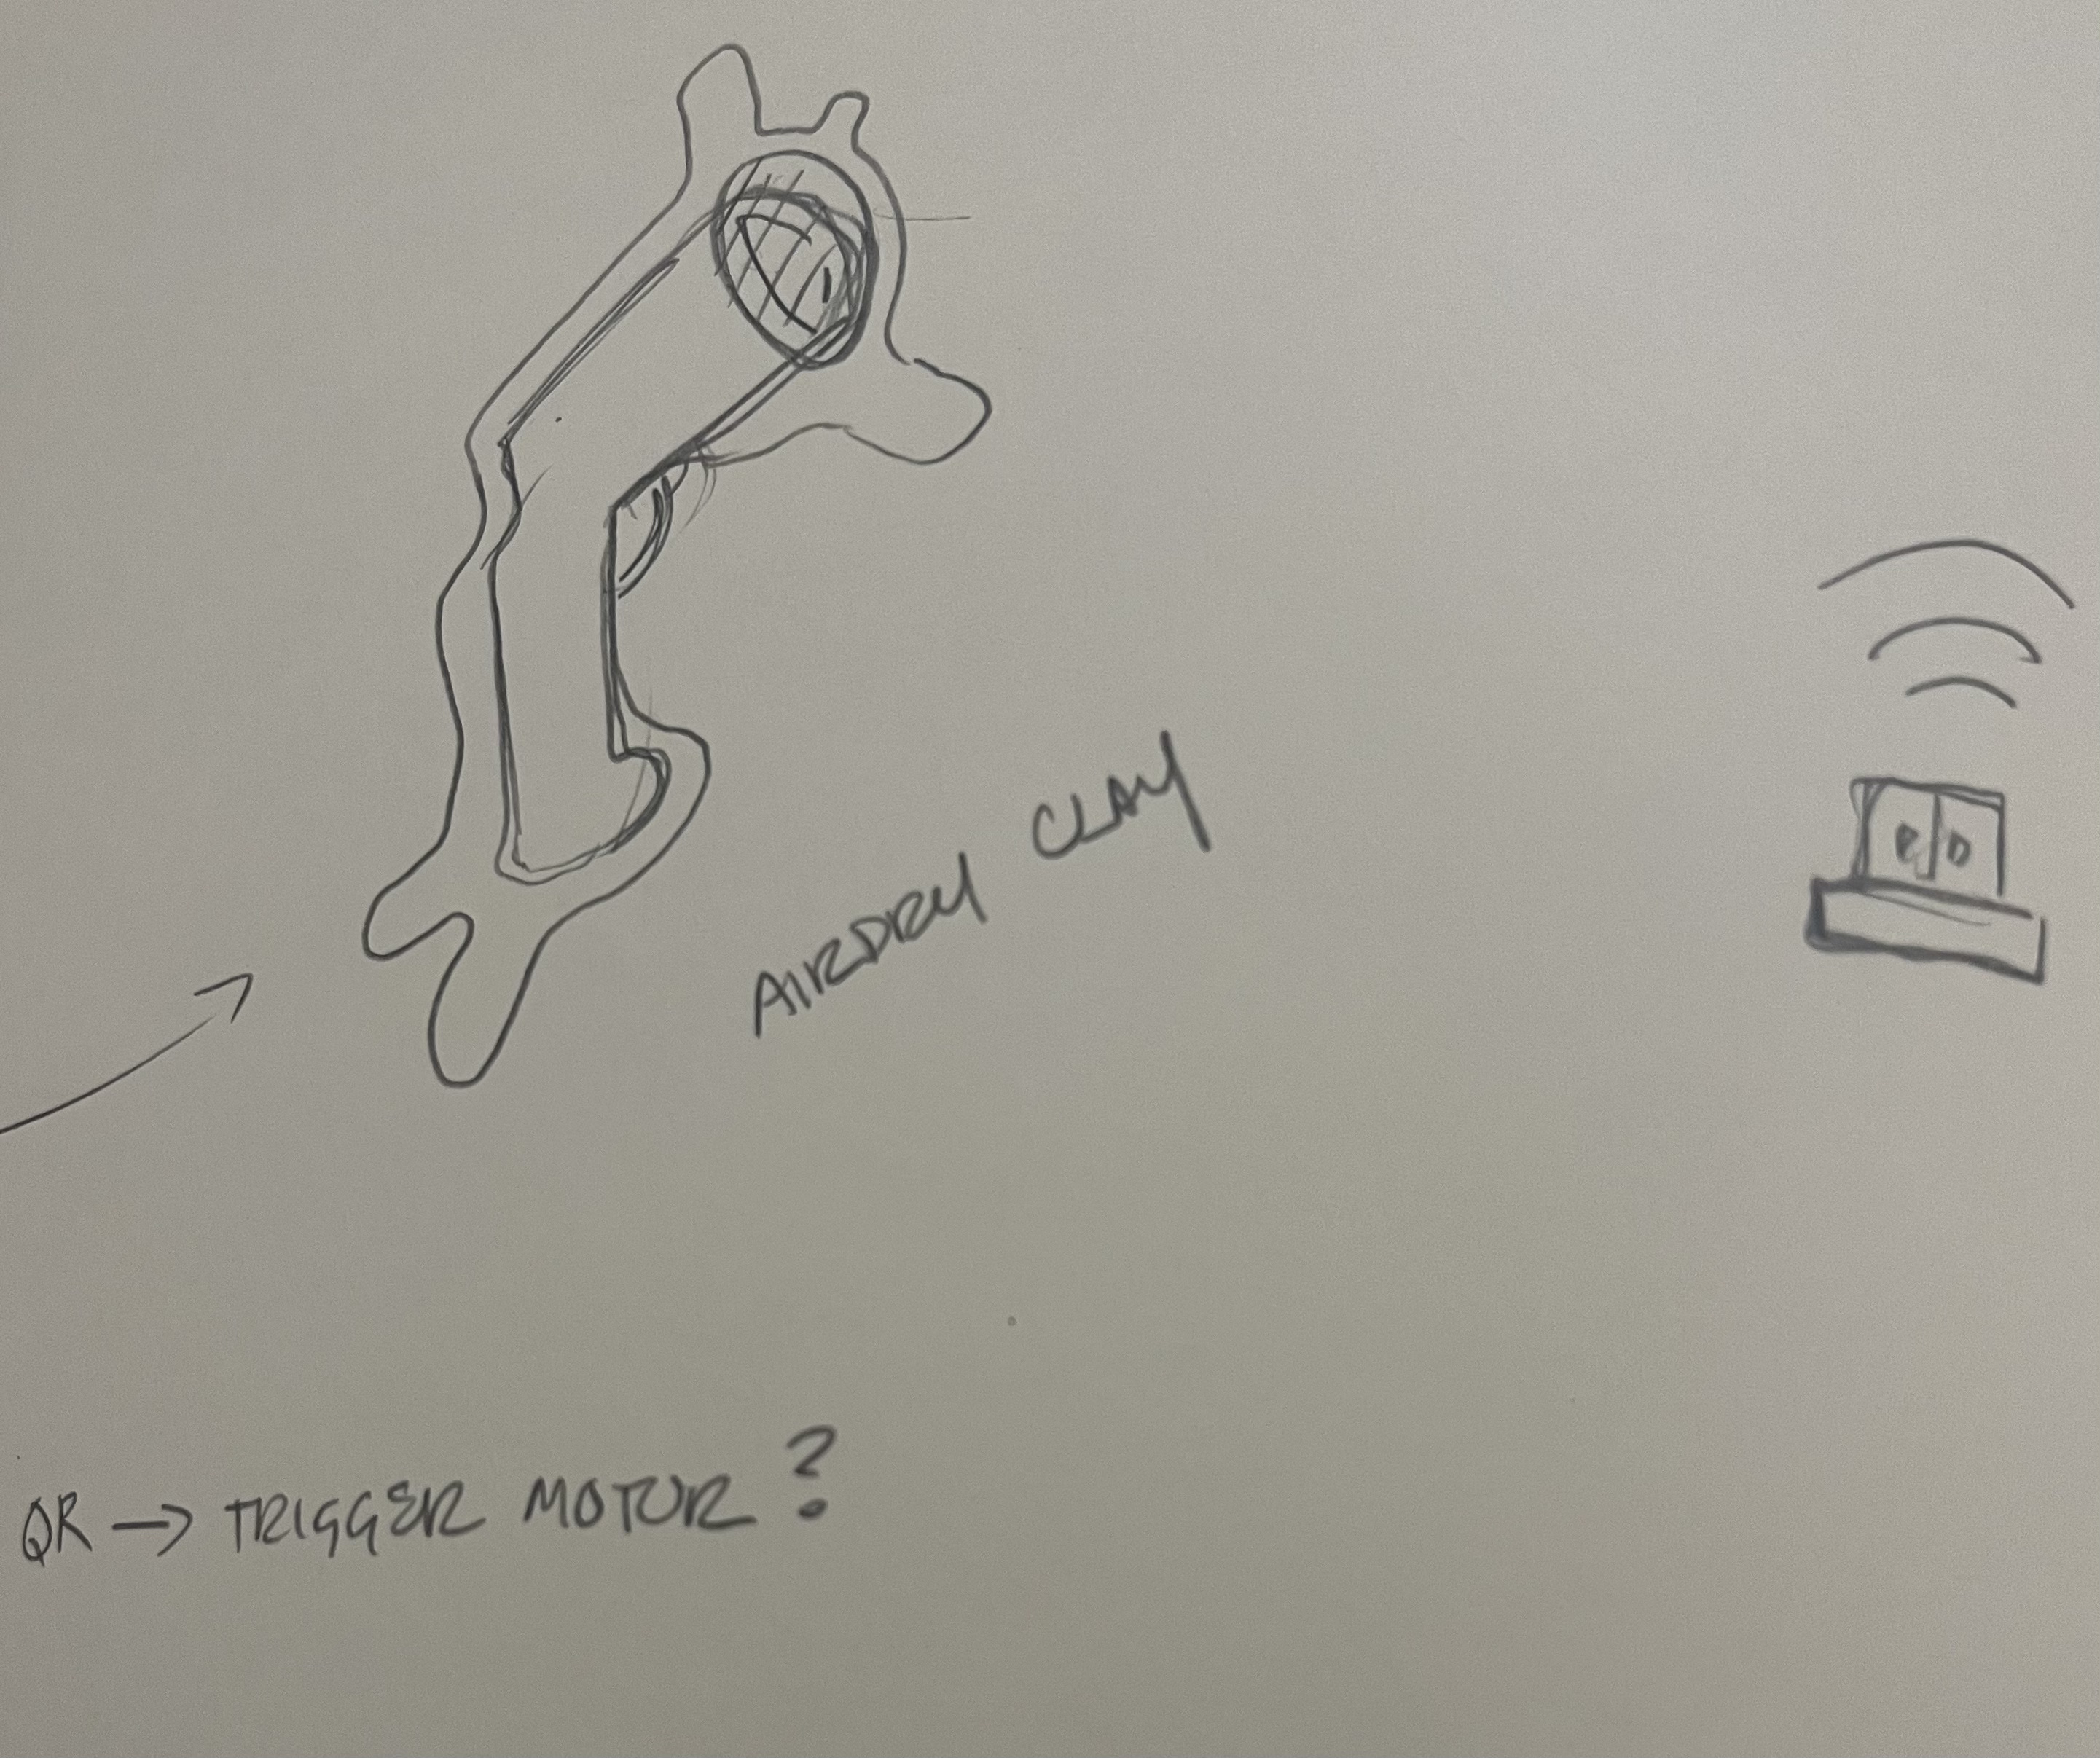 AIRDRY CLAY
QR → TRIGGER MOTOR?